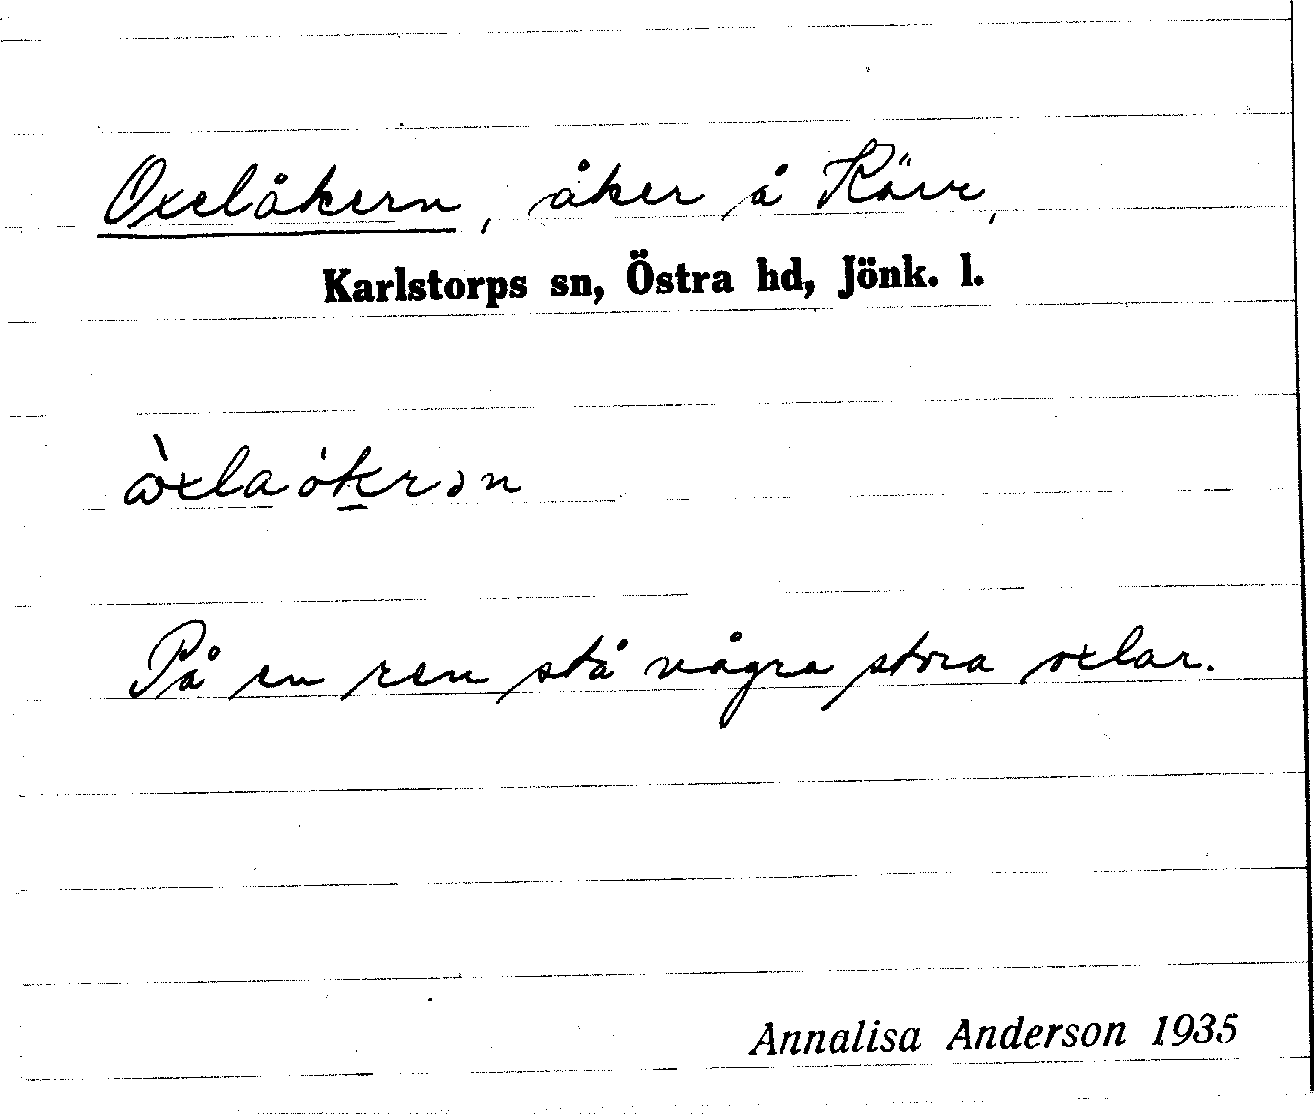 Oxelåkern, åker å Kärr,
Karlstorps sn, Östra hd, Jönk. l.
På en ren stå några stora oxlar.
Annalisa Anderson 1935